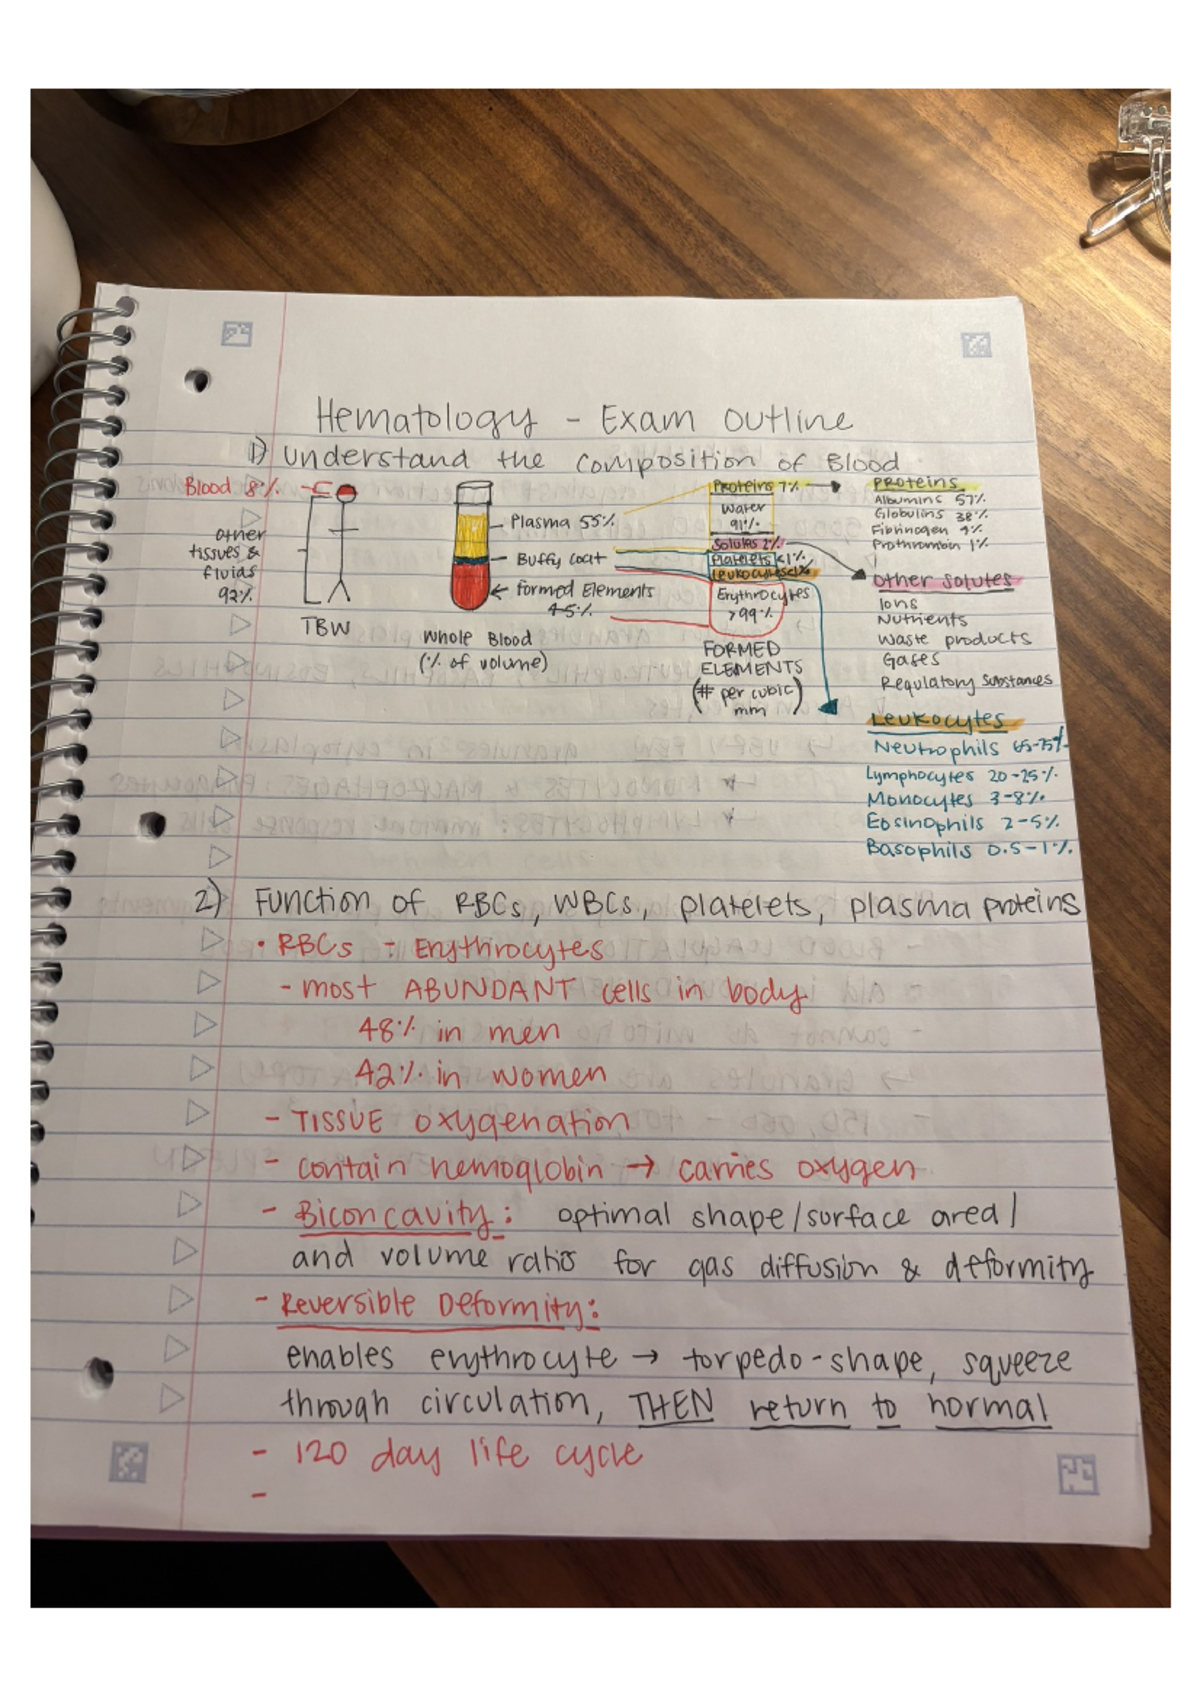 Hematology - Exam Outline
1) Understand the Composition of Blood
Blood 8%
other
tissues &
fluids
92%
TBW
Plasma 55%
Buffy Coat
Formed Elements
45%
Whole Blood
(% of volume)
Proteins 7%
Water
91%
Solutes 2%
Platelets <1%
Leukocytes <1%
Erythrocytes
>99%
FORMED
ELEMENTS
(# per cubic
mm)
PROTEINS
Albumins 57%
Globulins 38%
Fibrinogen 4%
Prothrombin 1%
Other Solutes
Ions
Nutrients
Waste products
Gases
Regulatory Substances
Leukocytes
Neutrophils 65-75%
Lymphocytes 20-25%
Monocytes 3-8%
Eosinophils 2-5%
Basophils 0.5-1%
2) Function of RBCs, WBCs, platelets, plasma proteins
• RBCs - Erythrocytes
- most ABUNDANT cells in body
48% in men
42% in women
- TISSUE oxygenation
- contain hemoglobin → carries oxygen
- Biconcavity: optimal shape/surface area/
and volume ratio for gas diffusion & deformity
- Reversible Deformity:
enables erythrocyte → torpedo-shape, squeeze
through circulation, THEN return to normal
- 120 day life cycle
-